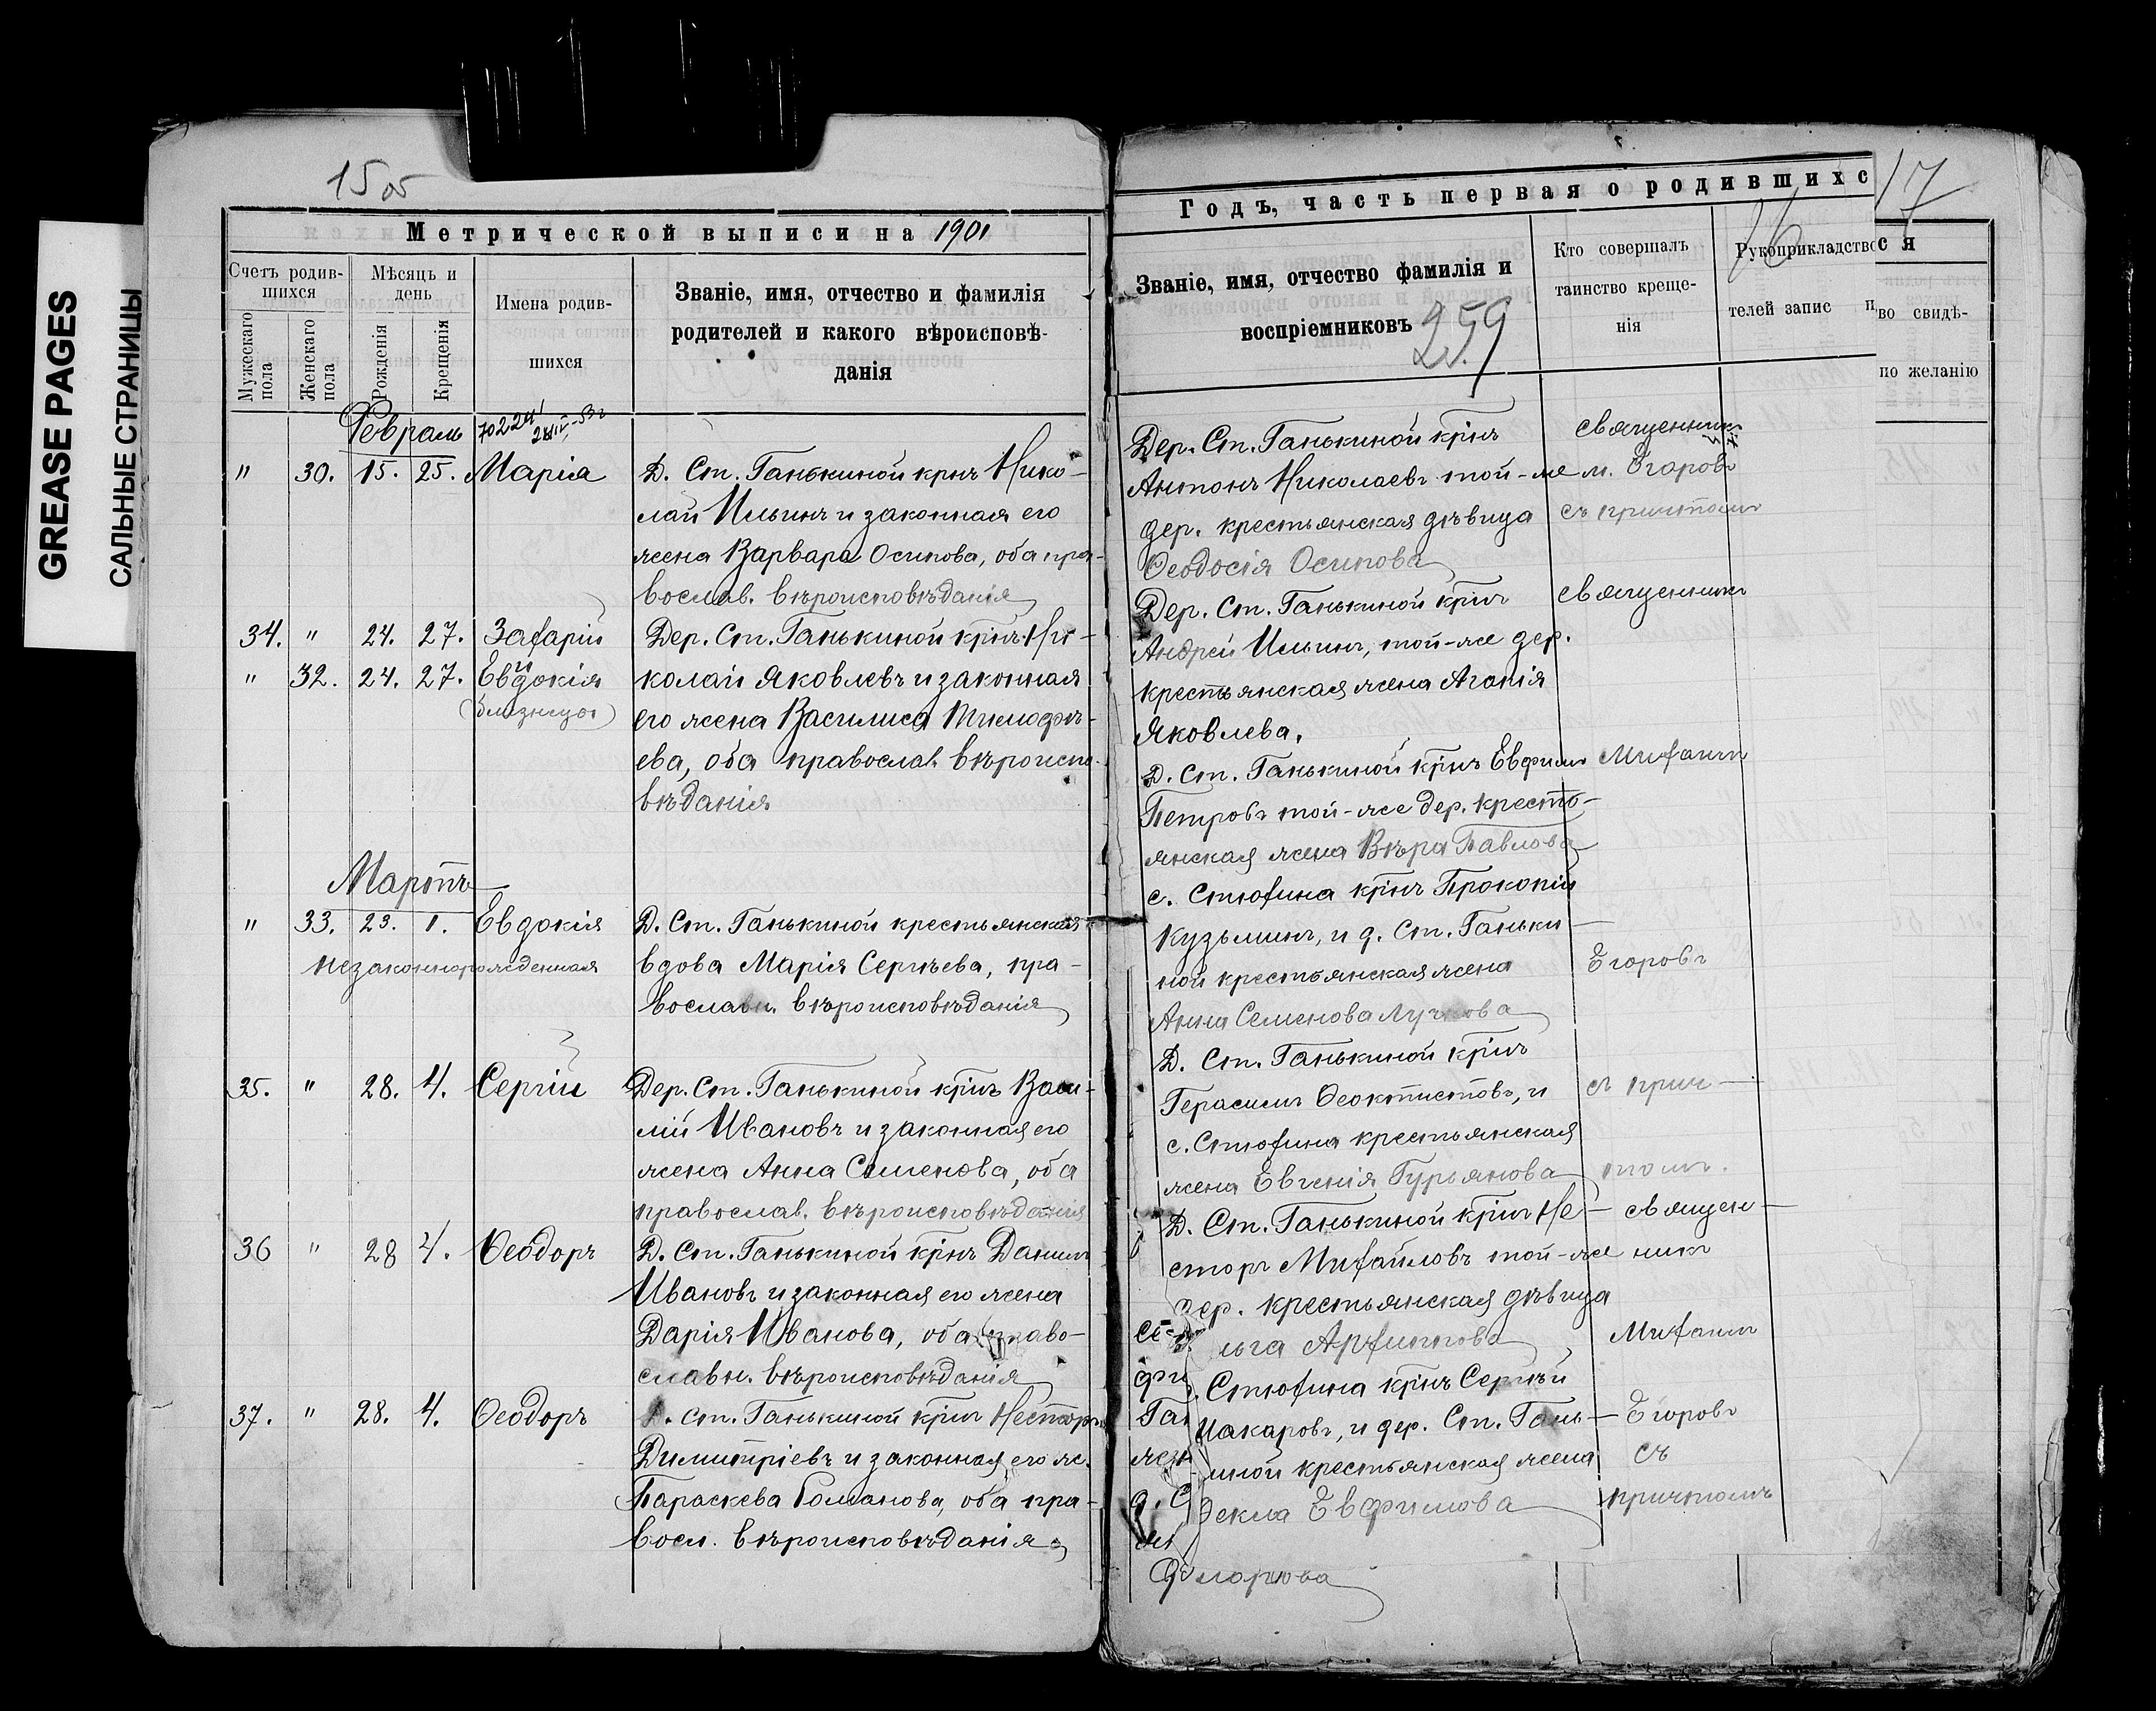 GREASE PAGES
САЛЬНЫЕ СТРАНИЦЫ
15об
Метрической выписи на 1901
Счетъ родив-
шихся
Мѣсяцъ и
день
Имена родив-
шихся
Званіе, имя, отчество и фамилія
родителей и какого вѣроисповѣ-
данія
Мужескаго
пола
Женскаго
пола
Рожденія
Крещенія
Февраль
" 30. 15. 25. Марія
Д. Ст. Ганькиной крнъ Нико-
лай Ильинъ и законная его
жена Варвара Осипова, оба пра-
вослав. вѣроисповѣданія
34. " 24. 27. Захарій
Дер. Ст. Ганькиной крнъ Ни-
и
" 32. 24. 27. Евдокія
колай Яковлевъ и законная
(близнецы)
его жена Василиса Тимофѣ-
ева, оба православ. вѣроиспо-
вѣданія
Мартъ
" 33. 23. 1. Евдокія
Д. Ст. Ганькиной крестьянская
незаконнорожденная
вдова Марія Сергѣева, пра-
вославн. вѣроисповѣданія
35. " 28. 4. Сергій
Дер. Ст. Ганькиной крнъ Васи-
лій Ивановъ и законная его
жена Анна Семенова, оба
православ. вѣроисповѣданія
36 " 28 4. Ѳеодоръ
Д. Ст. Ганькиной крнъ Данiилъ
Ивановъ и законная его жена
Дарія Иванова, оба право-
славн. вѣроисповѣданія
37. " 28. 4. Ѳеодоръ
Д. Ст. Ганькиной крнъ Несторъ
Димитріевъ и законная его ж.
Параскева Романова, оба пра-
восл. вѣроисповѣданія
Годъ, часть первая о родившихс
17
16
ся
Званіе, имя, отчество фамилія и
воспріемниковъ
259
Кто совершалъ
таинство креще-
нія
Рукоприкладство
телей запис п
во свидѣ-
по желанію
Дер. Ст. Ганькиной крнъ
Священникъ
Антонъ Николаевъ той-же
М. Егоровъ
дер. крестьянская дѣвица
съ причтомъ
Ѳеодосія Осипова
Дер. Ст. Ганькиной крнъ
Священникъ
Андрей Ильинъ, той-же дер.
крестьянская жена Агапія
Яковлева.
Д. Ст. Ганькиной крнъ Евфимъ
Михаилъ
Петровъ той-же дер. кресть-
янская жена Вѣра Павлова
с. Стюхина крнъ Прокопій
Кузьминъ, и д. Ст. Ганьки-
ной крестьянская жена
Егоровъ
Анна Семенова
Д. Ст. Ганькиной крнъ
Герасимъ Ѳеоктистовъ, и
съ прич-
с. Стюхина крестьянская
жена Евгенія Гурьянова
томъ.
Д. Ст. Ганькиной крнъ Не-
священ-
сторъ Михайловъ той-же
никъ
дер. крестьянская дѣвица
льга Архиппова
Михаилъ
. Стюхина крнъ Сергѣй
Макаровъ, и дер. Ст. Гань-
Егоровъ
иной крестьянская жена
съ
Ѳекла Евфимова
причтомъ